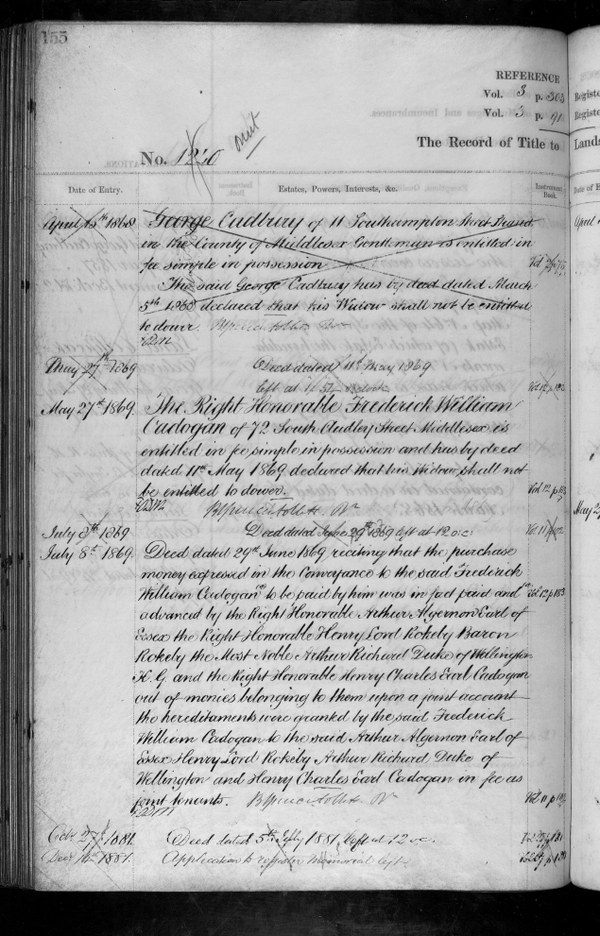 155
REFERENCE
Vol. 3 p. 303
Vol. 3 p. 91
The Record of Title to
No. 1240
Date of Entry.
Estates, Powers, Interests, &c.
Instrument Book.
April 15th 1868 George Cadbury of 11 Southampton Street Strand
in the County of Middlesex Gentleman is entitled in
fee simple in possession
The said George Cadbury has by deed dated March
5th 1868 declared that his Widow shall not be entitled
to dower.
May 27th 1869 Deed dated 11th May 1869
left at
May 27th 1869. The Right Honorable Frederick William
Cadogan of 72 South Audley Street Middlesex is
entitled in fee simple in possession and has by deed
dated 11th May 1869 declared that his widow shall not
be entitled to dower. Vol 12 p
July 8th 1869 Deed dated June 29th 1869 left at 12 o.c.
July 8th 1869. Deed dated 29th June 1869 reciting that the purchase
money expressed in the Conveyance to the said Frederick
William Cadogan to be paid by him was in fact paid and
advanced by the Right Honorable Arthur Algernon Earl of
Essex the Right Honorable Henry Lord Rokeby Baron
Rokeby the Most Noble Arthur Richard Duke of Wellington
K.G. and the Right Honorable Henry Charles Earl Cadogan
out of monies belonging to them upon a joint account
the hereditaments were granted by the said Frederick
William Cadogan to the said Arthur Algernon Earl of
Essex Henry Lord Rokeby Arthur Richard Duke of
Wellington and Henry Charles Earl Cadogan in fee as
joint tenants.
Octr 27 1881. Deed dated 5th July 1881 left at 12 o.c.
1881. Application to register memorial left
Registe
Registe
Lands
Date of E
April
May 2